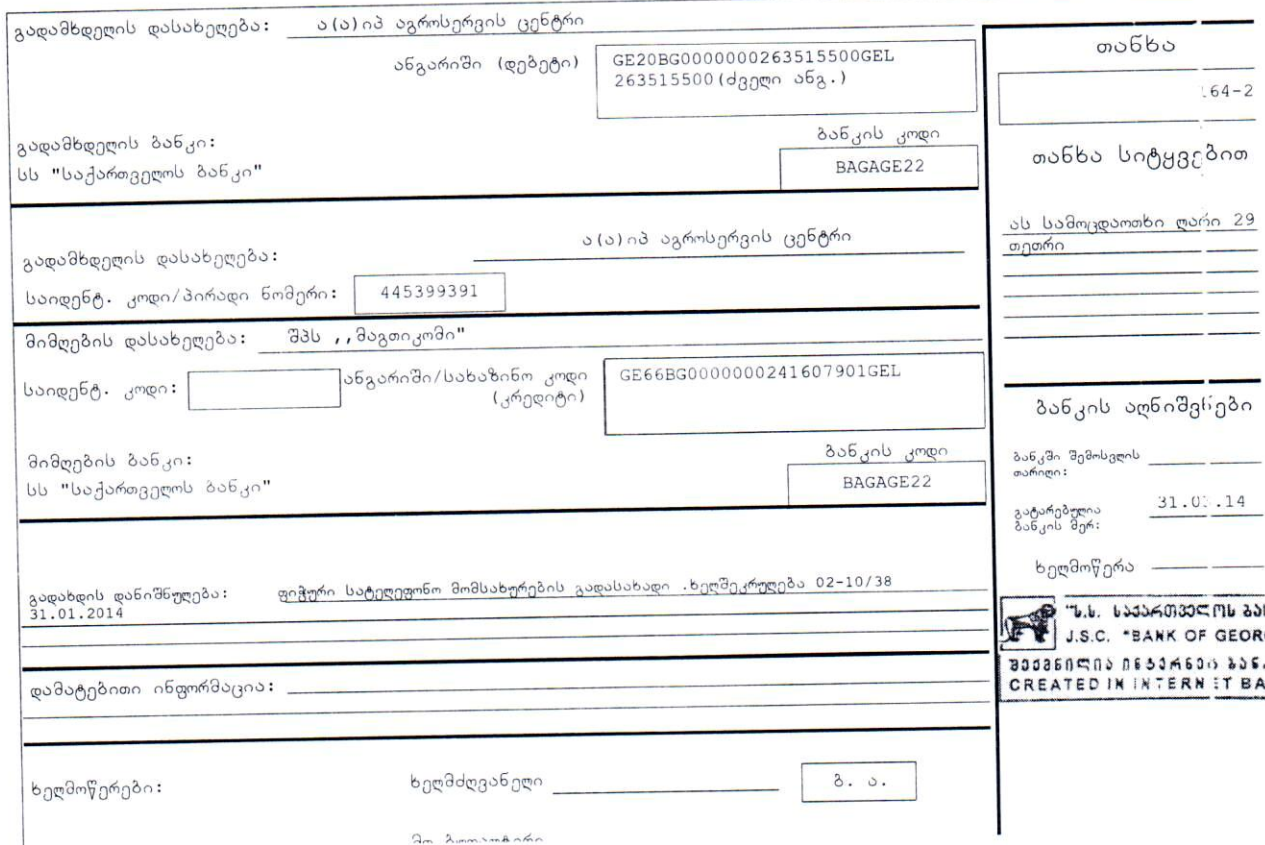 გადამხდელის დასახელება: ა(ა)იპ აგროსერვის ცენტრი
ანგარიში (დებეტი)
GE20BG0000000263515500GEL
263515500(ძველი ანგ.)
გადამხდელის ბანკი:
სს "საქართველოს ბანკი"
ბანკის კოდი
BAGAGE22
გადამხდელის დასახელება: ა(ა)იპ აგროსერვის ცენტრი
საიდენტ. კოდი/პირადი ნომერი: 445399391
მიმღების დასახელება: შპს ,,მაგთიკომი"
საიდენტ. კოდი:
ანგარიში/სახაზინო კოდი
(კრედიტი)
GE66BG0000000241607901GEL
მიმღების ბანკი:
სს "საქართველოს ბანკი"
ბანკის კოდი
BAGAGE22
გადახდის დანიშნულება: ფიჭური სატელეფონო მომსახურების გადასახადი .ხელშეკრულება 02-10/38
31.01.2014
დამატებითი ინფორმაცია:
ხელმოწერები: ხელმძღვანელი
ბ. ა.
თანხა
64-2
თანხა სიტყვებით
ას სამოცდაოთხი ლარი 29
თეთრი
ბანკის აღნიშვნები
ბანკში შემოსვლის
თარიღი:
გატარებულია
ბანკის მერ:
ხელმოწერა
"ს.ს. საქართველოს ბან
J.S.C. "BANK OF GEOR
შექმნილია ინტერნეტ ბან
CREATED IN INTERNET BA